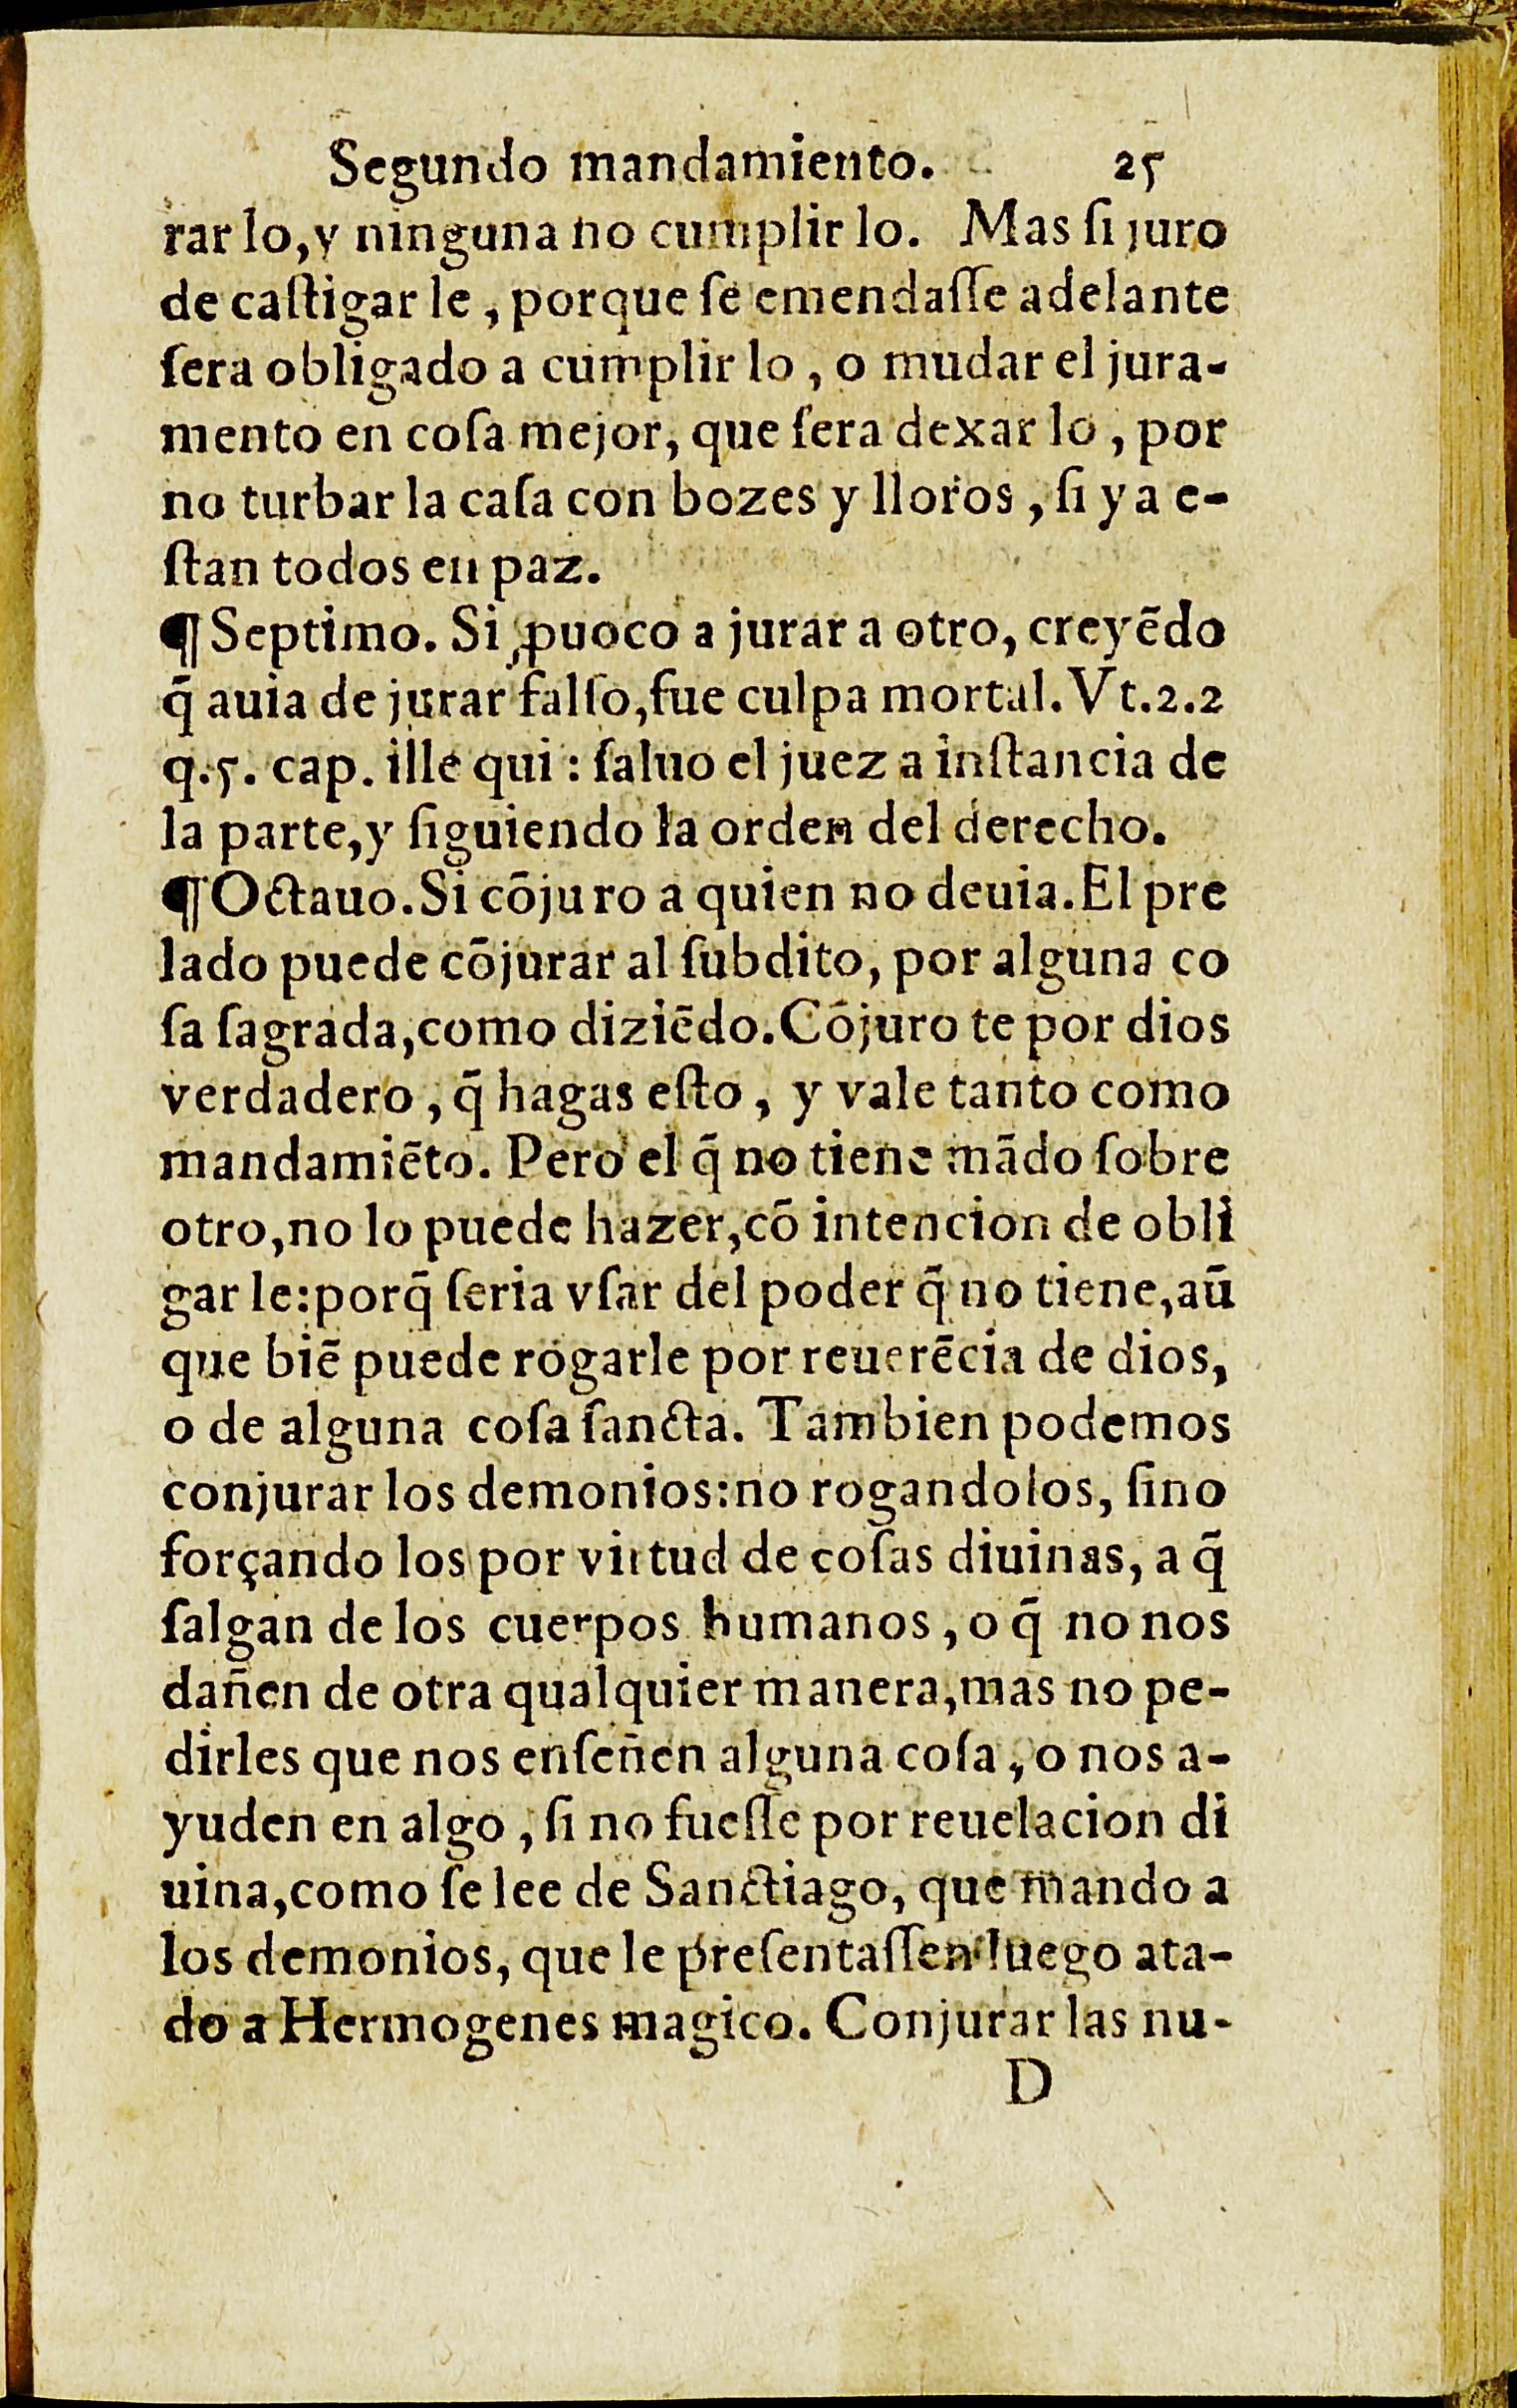 Segundo mandamiento. 25
rar lo,y ninguna no cumplir lo. Mas ſi juro
de caſtigar le, porque ſe emendaſſe adelante
ſera obligado a cumplir lo, o mudar el jura-
mento en coſa mejor, que ſera dexar lo, por
no turbar la caſa con bozes y lloros, ſi ya e-
ſtan todos en paz.
¶ Septimo. Si ꝓuoco a jurar a otro, creyẽdo
q̃ auia de jurar falſo,fue culpa mortal. Vt.2.2
q.5. cap. ille qui: ſaluo el juez a inſtancia de
la parte,y ſiguiendo la orden del derecho.
¶ Octauo. Si cõjuro a quien no deuia. El pre
lado puede cõjurar al ſubdito, por alguna co
ſa ſagrada,como diziẽdo. Cõjuro te por dios
verdadero, q̃ hagas eſto, y vale tanto como
mandamiẽto. Pero el q̃ no tiene mãdo ſobre
otro,no lo puede hazer,cõ intencion de obli
gar le:porq̃ ſeria vſar del poder q̃ no tiene,aũ
que biẽ puede rogarle por reuerẽcia de dios,
o de alguna coſa ſancta. Tambien podemos
conjurar los demonios:no rogandolos, ſino
forçando los por virtud de coſas diuinas, a q̃
ſalgan de los cuerpos humanos, o q̃ no nos
dañen de otra qualquier manera,mas no pe-
dirles que nos enſeñen alguna coſa, o nos a-
yuden en algo, ſi no fueſſe por reuelacion di
uina,como ſe lee de Sanctiago, que mando a
los demonios, que le preſentaſſen luego ata-
do a Hermogenes magico. Conjurar las nu-
D